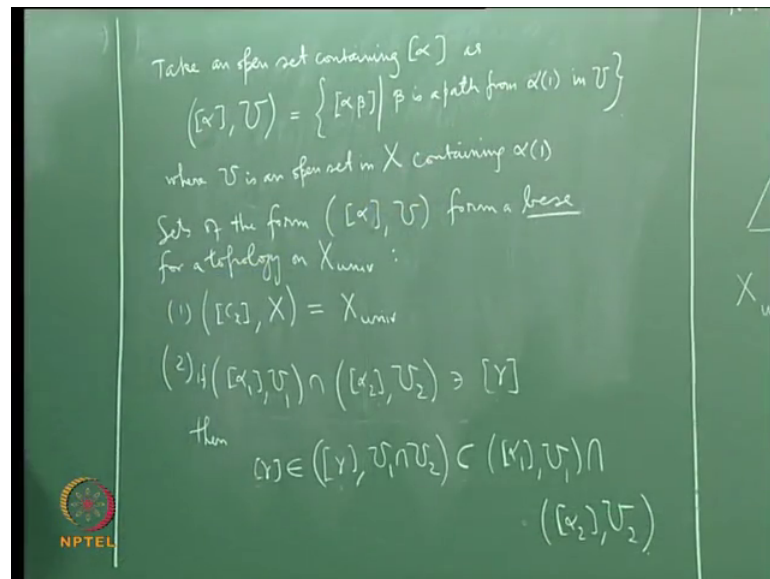 Take an open set containing [α] as
([α], U) = { [αβ] | β is a path from α(1) in U }
where U is an open set in X containing α(1)
Sets of the form ([α], U) form a base
for a topology on X univ :
(1) ([c₂], X) = X univ
(2) if ([α₁], U₁) ∩ ([α₂], U₂) ∋ [γ]
then
[γ] ∈ ([γ], U₁∩U₂) ⊂ ([α₁], U₁) ∩
([α₂], U₂)
X
NPTEL